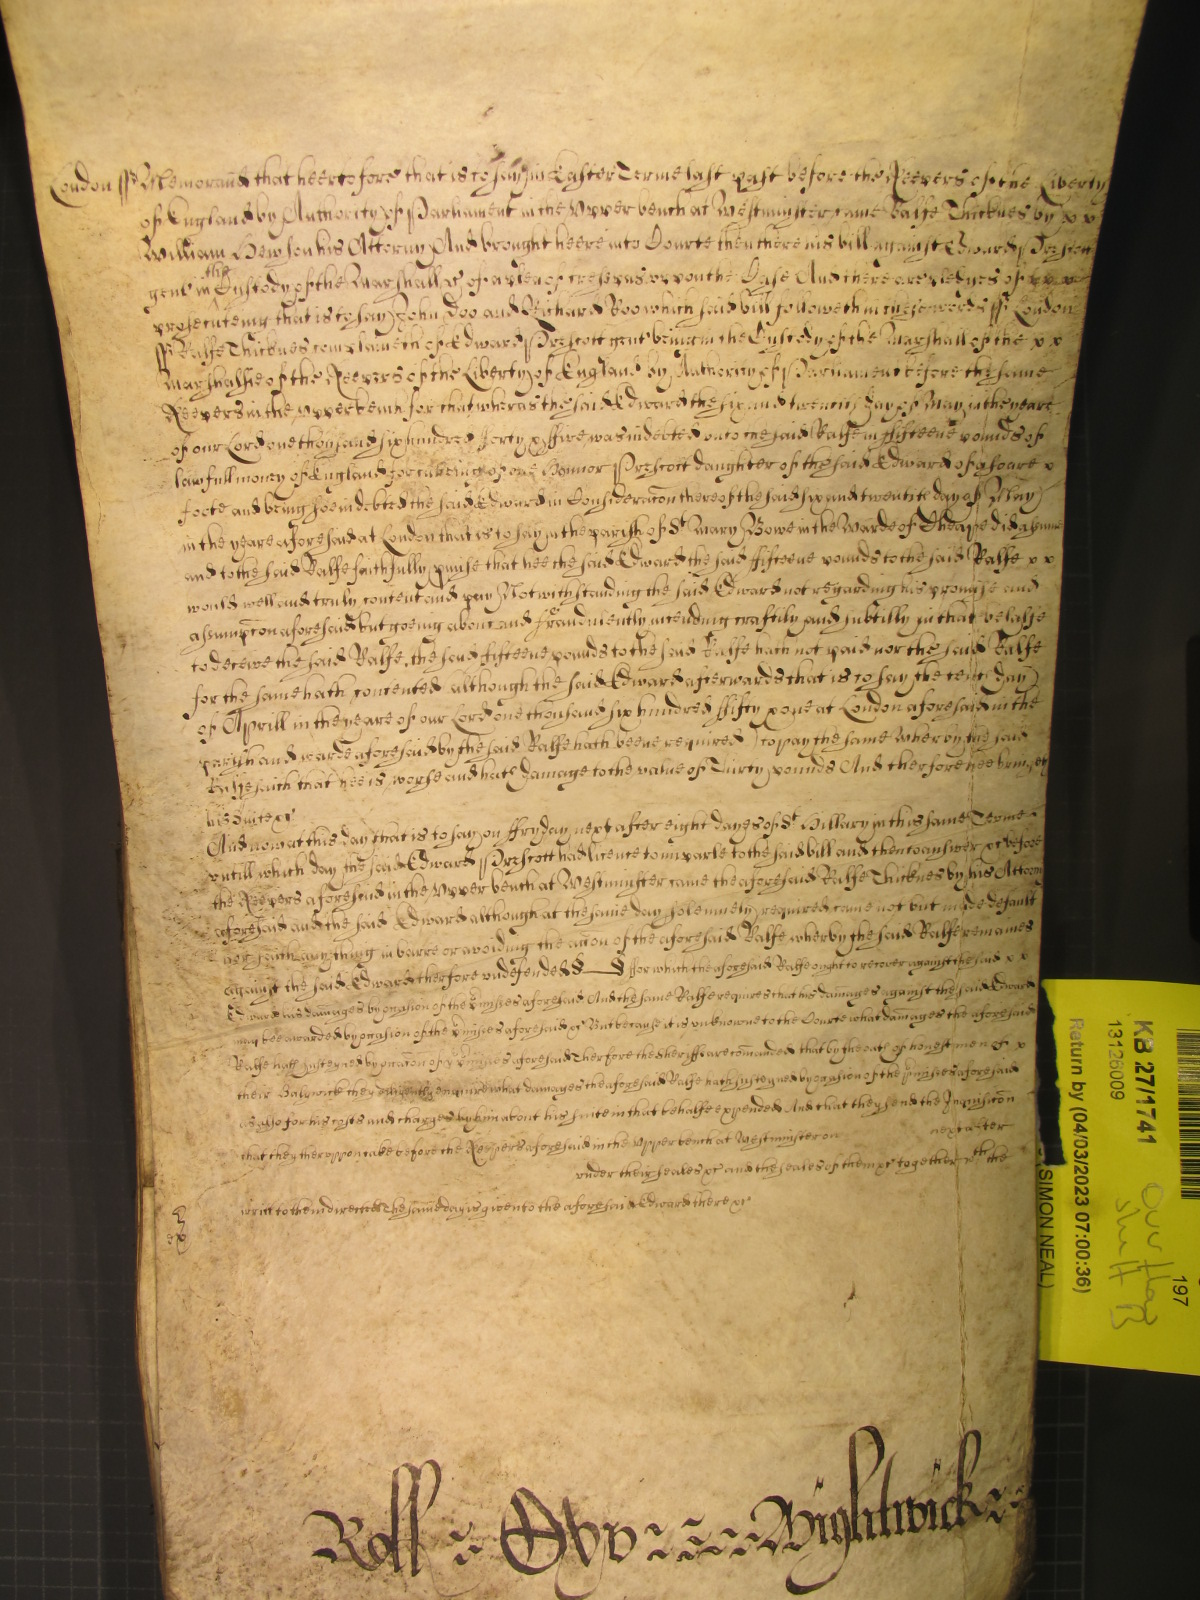 London ss Memorand that heertofore that is to say in Easter Terme last past before the Keepers of the Liberty
of England by Authority of Parliament in the Upper bench at Westminster came Ralfe Thicknes by x x
William Hewson his Attorny And brought heere into Courte then there his bill against Edward Prescott
gent in the Custody of the Marshall &c of a plea of trespas uppon the Case And there are pledges of x x x
prosecuteing that is to say John Doo and Richard Roo which said bill followeth in these words ss London
ss Ralfe Thicknes complaineth of Edward Prescott gent being in the Custody of the Marshall of the x x
Marshalsie of the Keepers of the Liberty of England by Authority of Parliament before the same
Keepers in the upper bench for that wheras the said Edward the six and twentith day of May in the yeare
of our Lord one thousand six hundred forty & ffive was indebted unto the said Ralfe in ffifteene pounds of
lawfull money of England for cureing of one Prescott daughter of the said Edward of a soare x
foote and being soe indebted the said Edward in Consideracon thereof the said six and twentith day of May
in the yeare aforesaid at London that is to say in the parish of St Mary Bowe in the Warde of Cheape did assume
and to the said Ralfe faithfully pmise that hee the said Edward the said ffifteene pounds to the said Ralfe x x
would well and truly content and pay Notwithstanding the said Edward not regarding his promise and
assumpcon aforesaid but goeing about and fraudulently intending craftily and subtilly in that behalfe
to deceive the said Ralfe, the said ffifteene pounds to the said Ralfe hath not paid nor the said Ralfe
for the same hath contented although the said Edward afterwards that is to say the tenth day
of Aprill in the yeare of our Lord one thousand six hundred ffifty & one at London aforesaid in the
parish and warde aforesaid by the said Ralfe hath beene required to pay the same Wherby the said
Ralfe saith that hee is worse and hath damage to the value of Thirty pounds And therfore hee bringeth
his Suite &c
And now at this day that is to say on ffryday next after eight dayes of St Hillary in this same Terme
untill which day the said Edward Prescott had licence to imparle to the said bill and then to answer &c before
the Keepers aforesaid in the Upper bench at Westminster came the aforesaid Ralfe Thicknes by his Attorny
aforesaid and the said Edward although at the same day solemnely required came not but made default
nor saith anything in barre or avoiding the accon of the aforesaid Ralfe wherby the said Ralfe remaines
against the said Edward therfore undefended for which the aforesaid Ralfe ought to recover against the said x x
Edward his damages by occasion of the pmisses aforesaid And the same Ralfe requires that his damages against the said Edward
may bee awarded by occasion of the pmisses aforesaid &c But because it is unknowne to the Courte what damages the aforesaid
Ralfe hath susteyned by occasion of ye pmisses aforesaid Therfore the sheriffs are comanded that by the oath of honest men of x
their Balywick they diligently enquire what damages the aforesaid Ralfe hath susteyned by occasion of the pmisses aforesaid
as also for his costs and charges by him about his suite in that behalfe expended And that they send the Inquisicon
that they theruppon take before the Keepers aforesaid in the Upper bench at Westminster on next after
under their seales &c and the seales of them &c together wth the
writt to them directed The same day is given to the aforesaid Edward there &c
Roll
Wightwick
KB 27/1741
13126009
Return by (04/03/2023 07:00:36)
SIMON NEAL)
197